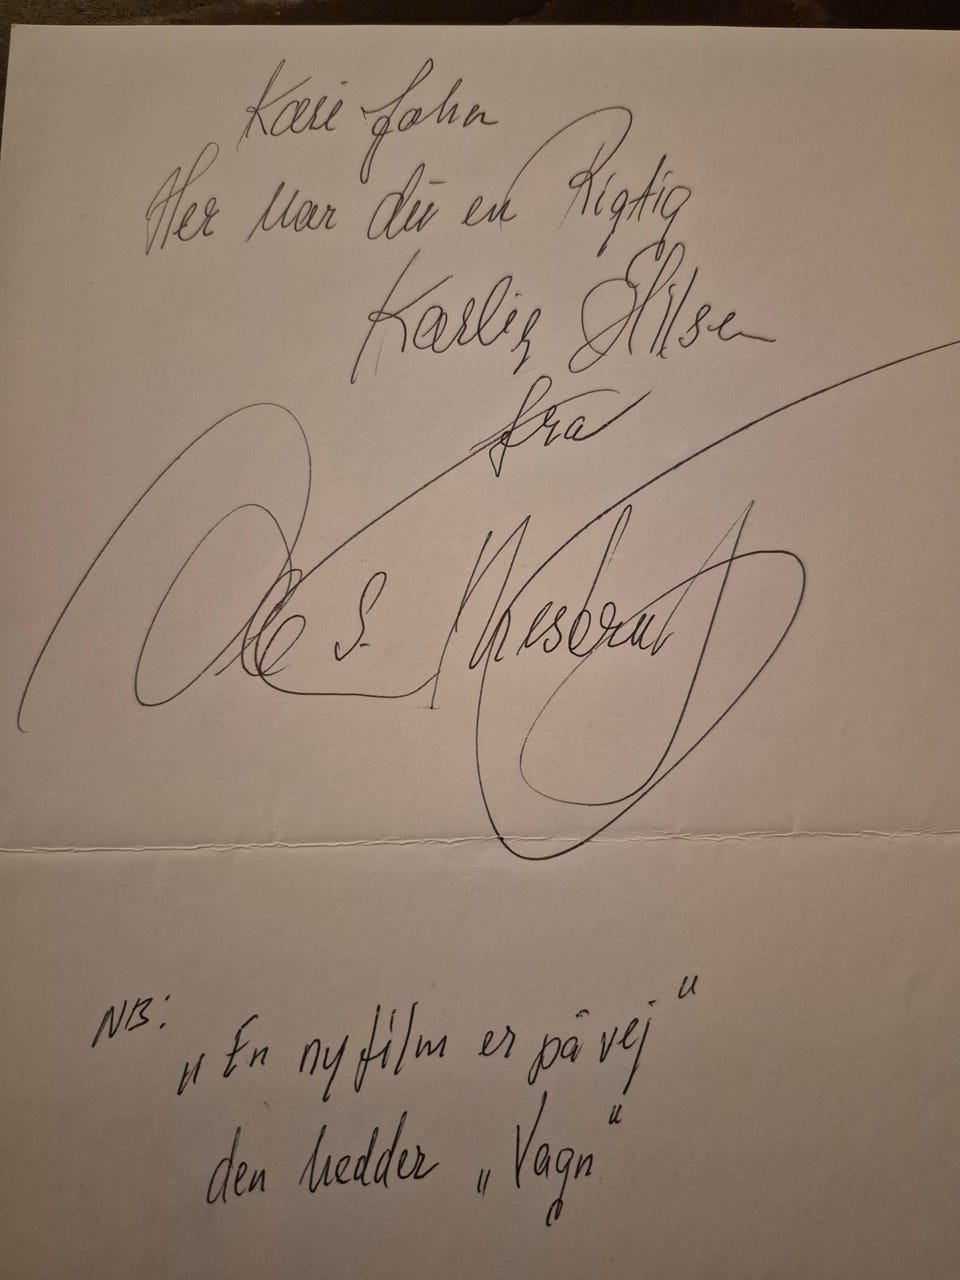 Kære John
Her var du en Rigtig
Kærlig Hilsen
fra
Ole S.
NB:
„En ny film er på vej"
den hedder „Vagn"